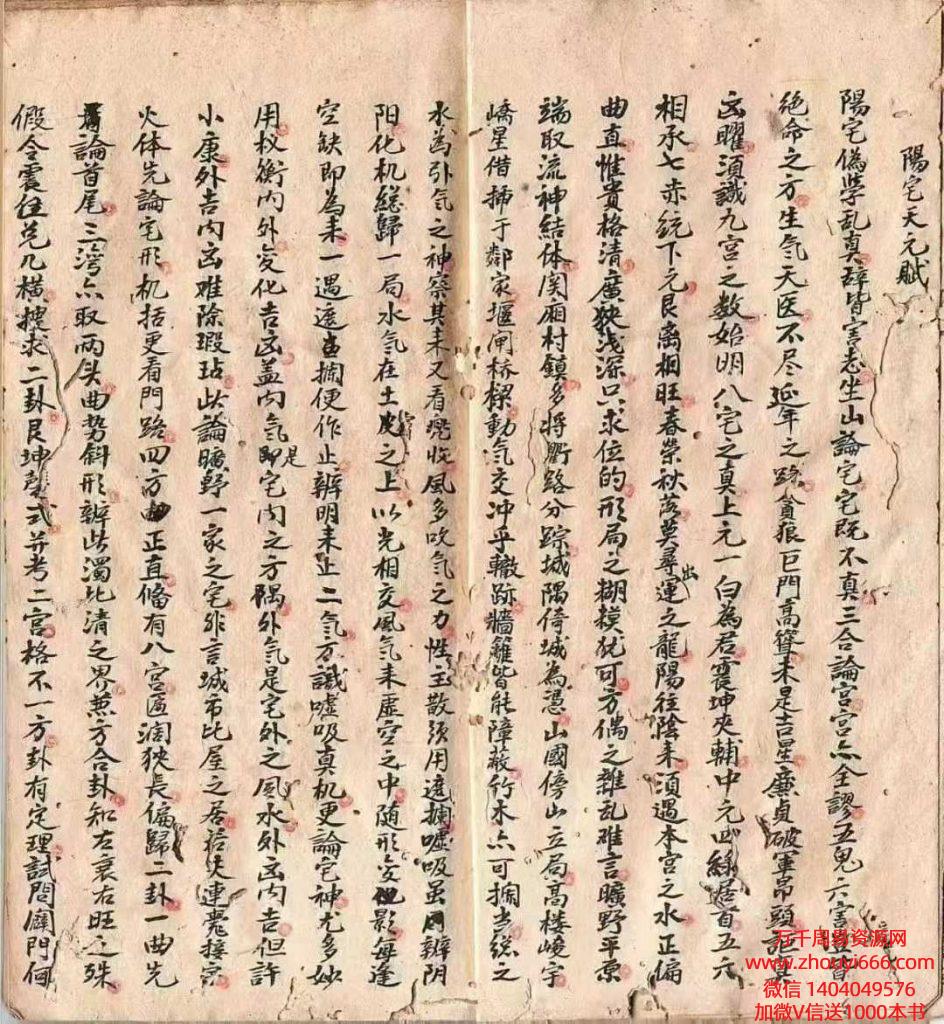 陽宅天元賦
陽宅偽学乱真辞皆害志坐山論宅宅既不真三合論宫宫亦全謬五鬼六害豈皆
绝命之方生气天医不尽延年之路貪狼巨門高聳未是吉星廉貞破軍昂頭詎其
凶曜須識九宫之数始明八宅之真上元一白為君震坤夾輔中元四綠居首五六
相承七赤统下元艮离相旺春荣秋落莫尋出運之龍陽往陰来須遇本宫之水正偏
曲直惟貴格清廣狹浅深只求位的形局之糊模犹可方偶之雜乱难言曠野平原
端取流神結体関厢村鎮多将衢路分踪城隅倚城為憑山國傍山立局高楼峻宇
嶠星借插于鄰家堰闸桥樑動气交冲乎轍跡牆籬皆能障蔽竹木亦可拦当総之
水為引气之神察其来又看兜收風多吹气之力性主散须用遮拦嘘吸虽同辨阴
阳化机総歸一局水气在土皮之上以光相交風气来虚空之中随形变影每逢
空缺即為来一遇遮当拦便作止辨明来止二气方識嘘吸真机更論宅神尤多妙
用权衡内外变化吉凶盖内气即是宅内之方隅外气是宅外之風水外凶内吉但許
小康外吉内凶难除瑕玷此論曠野一家之宅非言城市比屋之居若夫連甍接宗
火体先論宅形机括更看門路四方正直俻有八宫匾濶狹長偏歸二卦一曲先
論首尾三湾亦取两头曲势斜形辨此濁比清之界兼方合卦知左衰右旺之殊
假令震住兑几横搜求二卦艮坤整式并考二宫格不一方卦有定理試問廨門何
万千周易资源网
www.zhouyi666.com
微信 1404049576
加微V信送1000本书